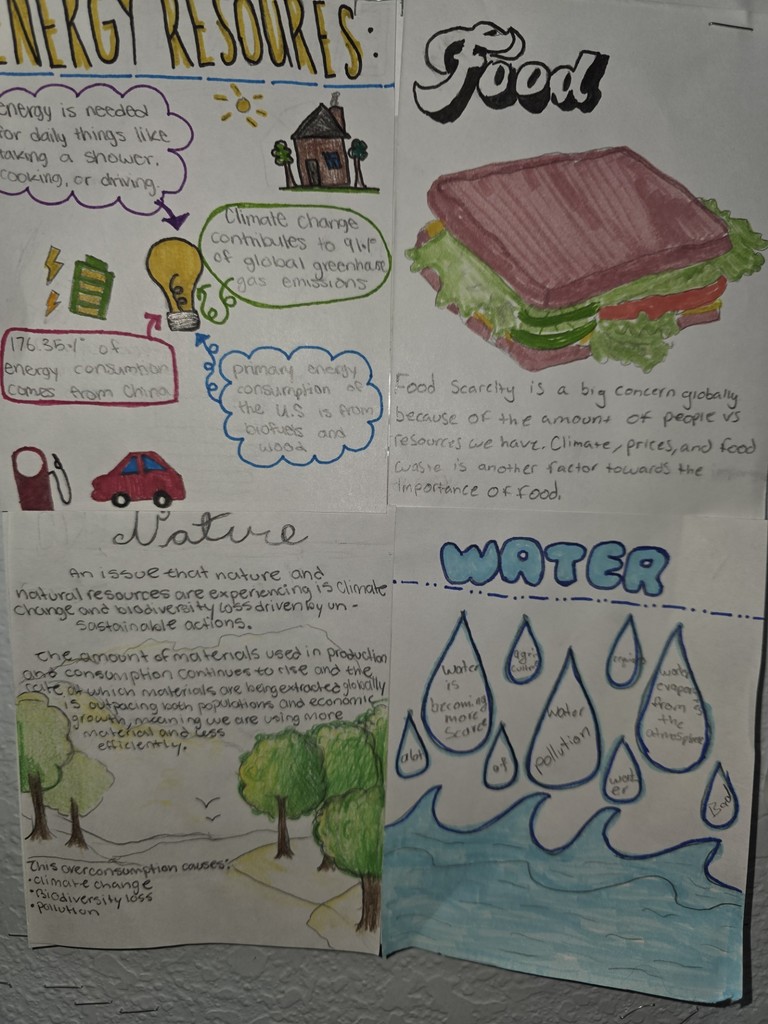 ENERGY RESOURES:
energy is needed
for daily things like
taking a shower,
cooking, or driving.
Climate change
contributes to 91%
of global greenhouse
gas emissions
176.35% of
energy consumtion
comes from China
primary energy
consumption of
the U.S is from
biofuels and
wood
Food
Food Scarcity is a big concern globally
because of the amount of people vs
resources we have. Climate, prices, and food
waste is another factor towards the
importance of food.
Nature
An issue that nature and
natural resources are experiencing is climate
change and biodiversity loss driven by un-
sustainable actions.
The amount of materials used in production
and consumption continues to rise and the
rate at which materials are being extracted globally
is outpacing both populations and economic
growth, meaning we are using more
material and less
efficiently.
This overconsumption causes:
• climate change
• Biodiversity loss
• pollution
WATER
water
is
becoming
more
scarce
water
pollution
water
from
the
atmosphere
alot
of
wat
er